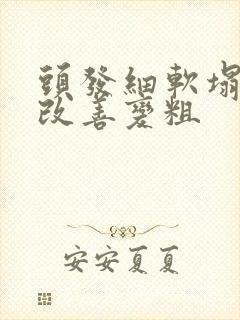 頭發細軟塌
改善變粗
安安夏夏